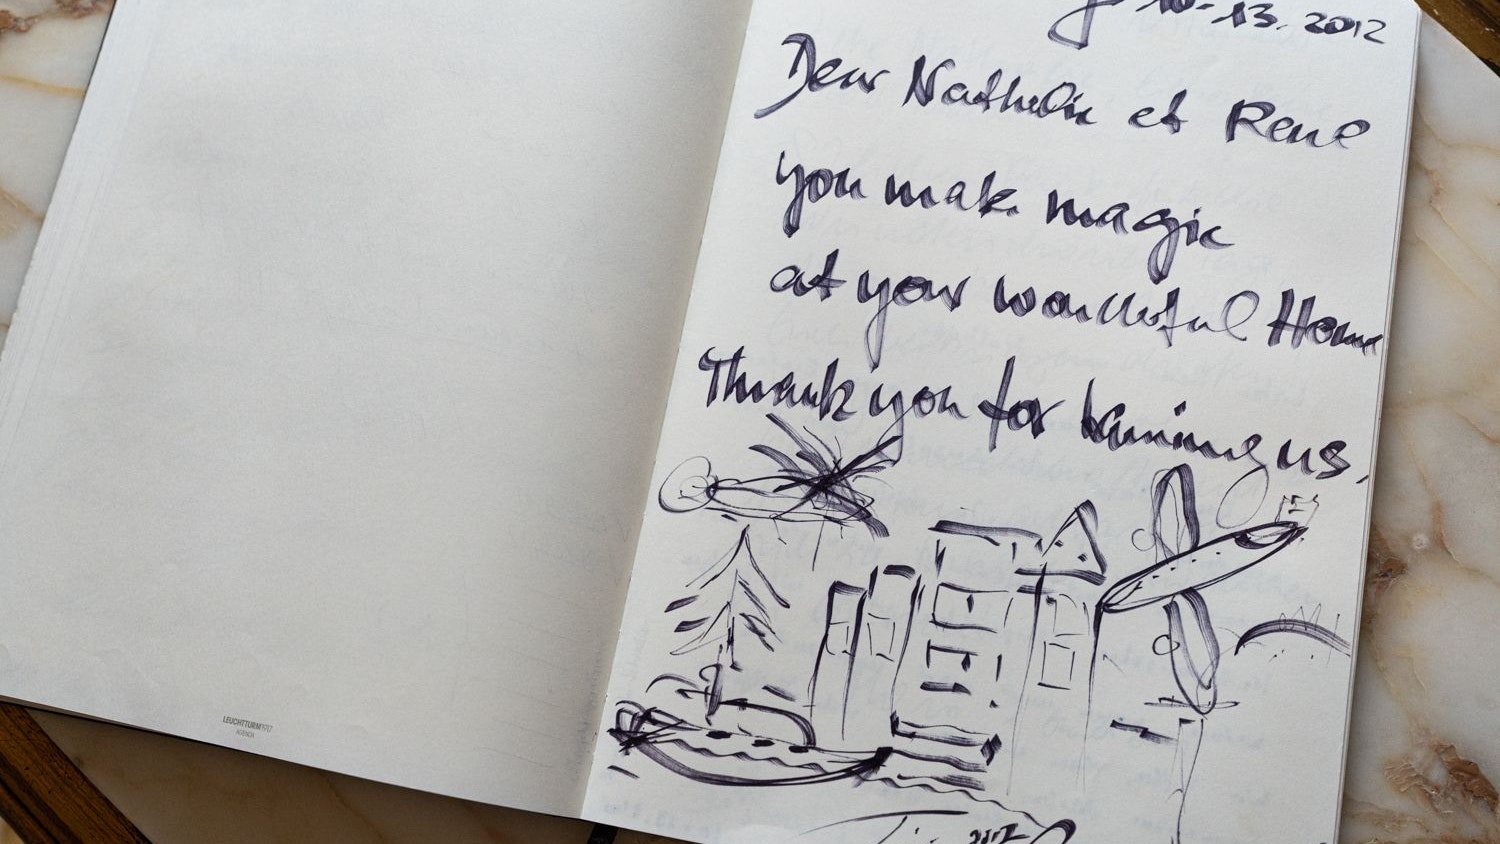 10-13. 2012
Dear Nathalie et René
you make magic
at your wonderful Home
Thank you for having us.
2012
LEUCHTTURM1917